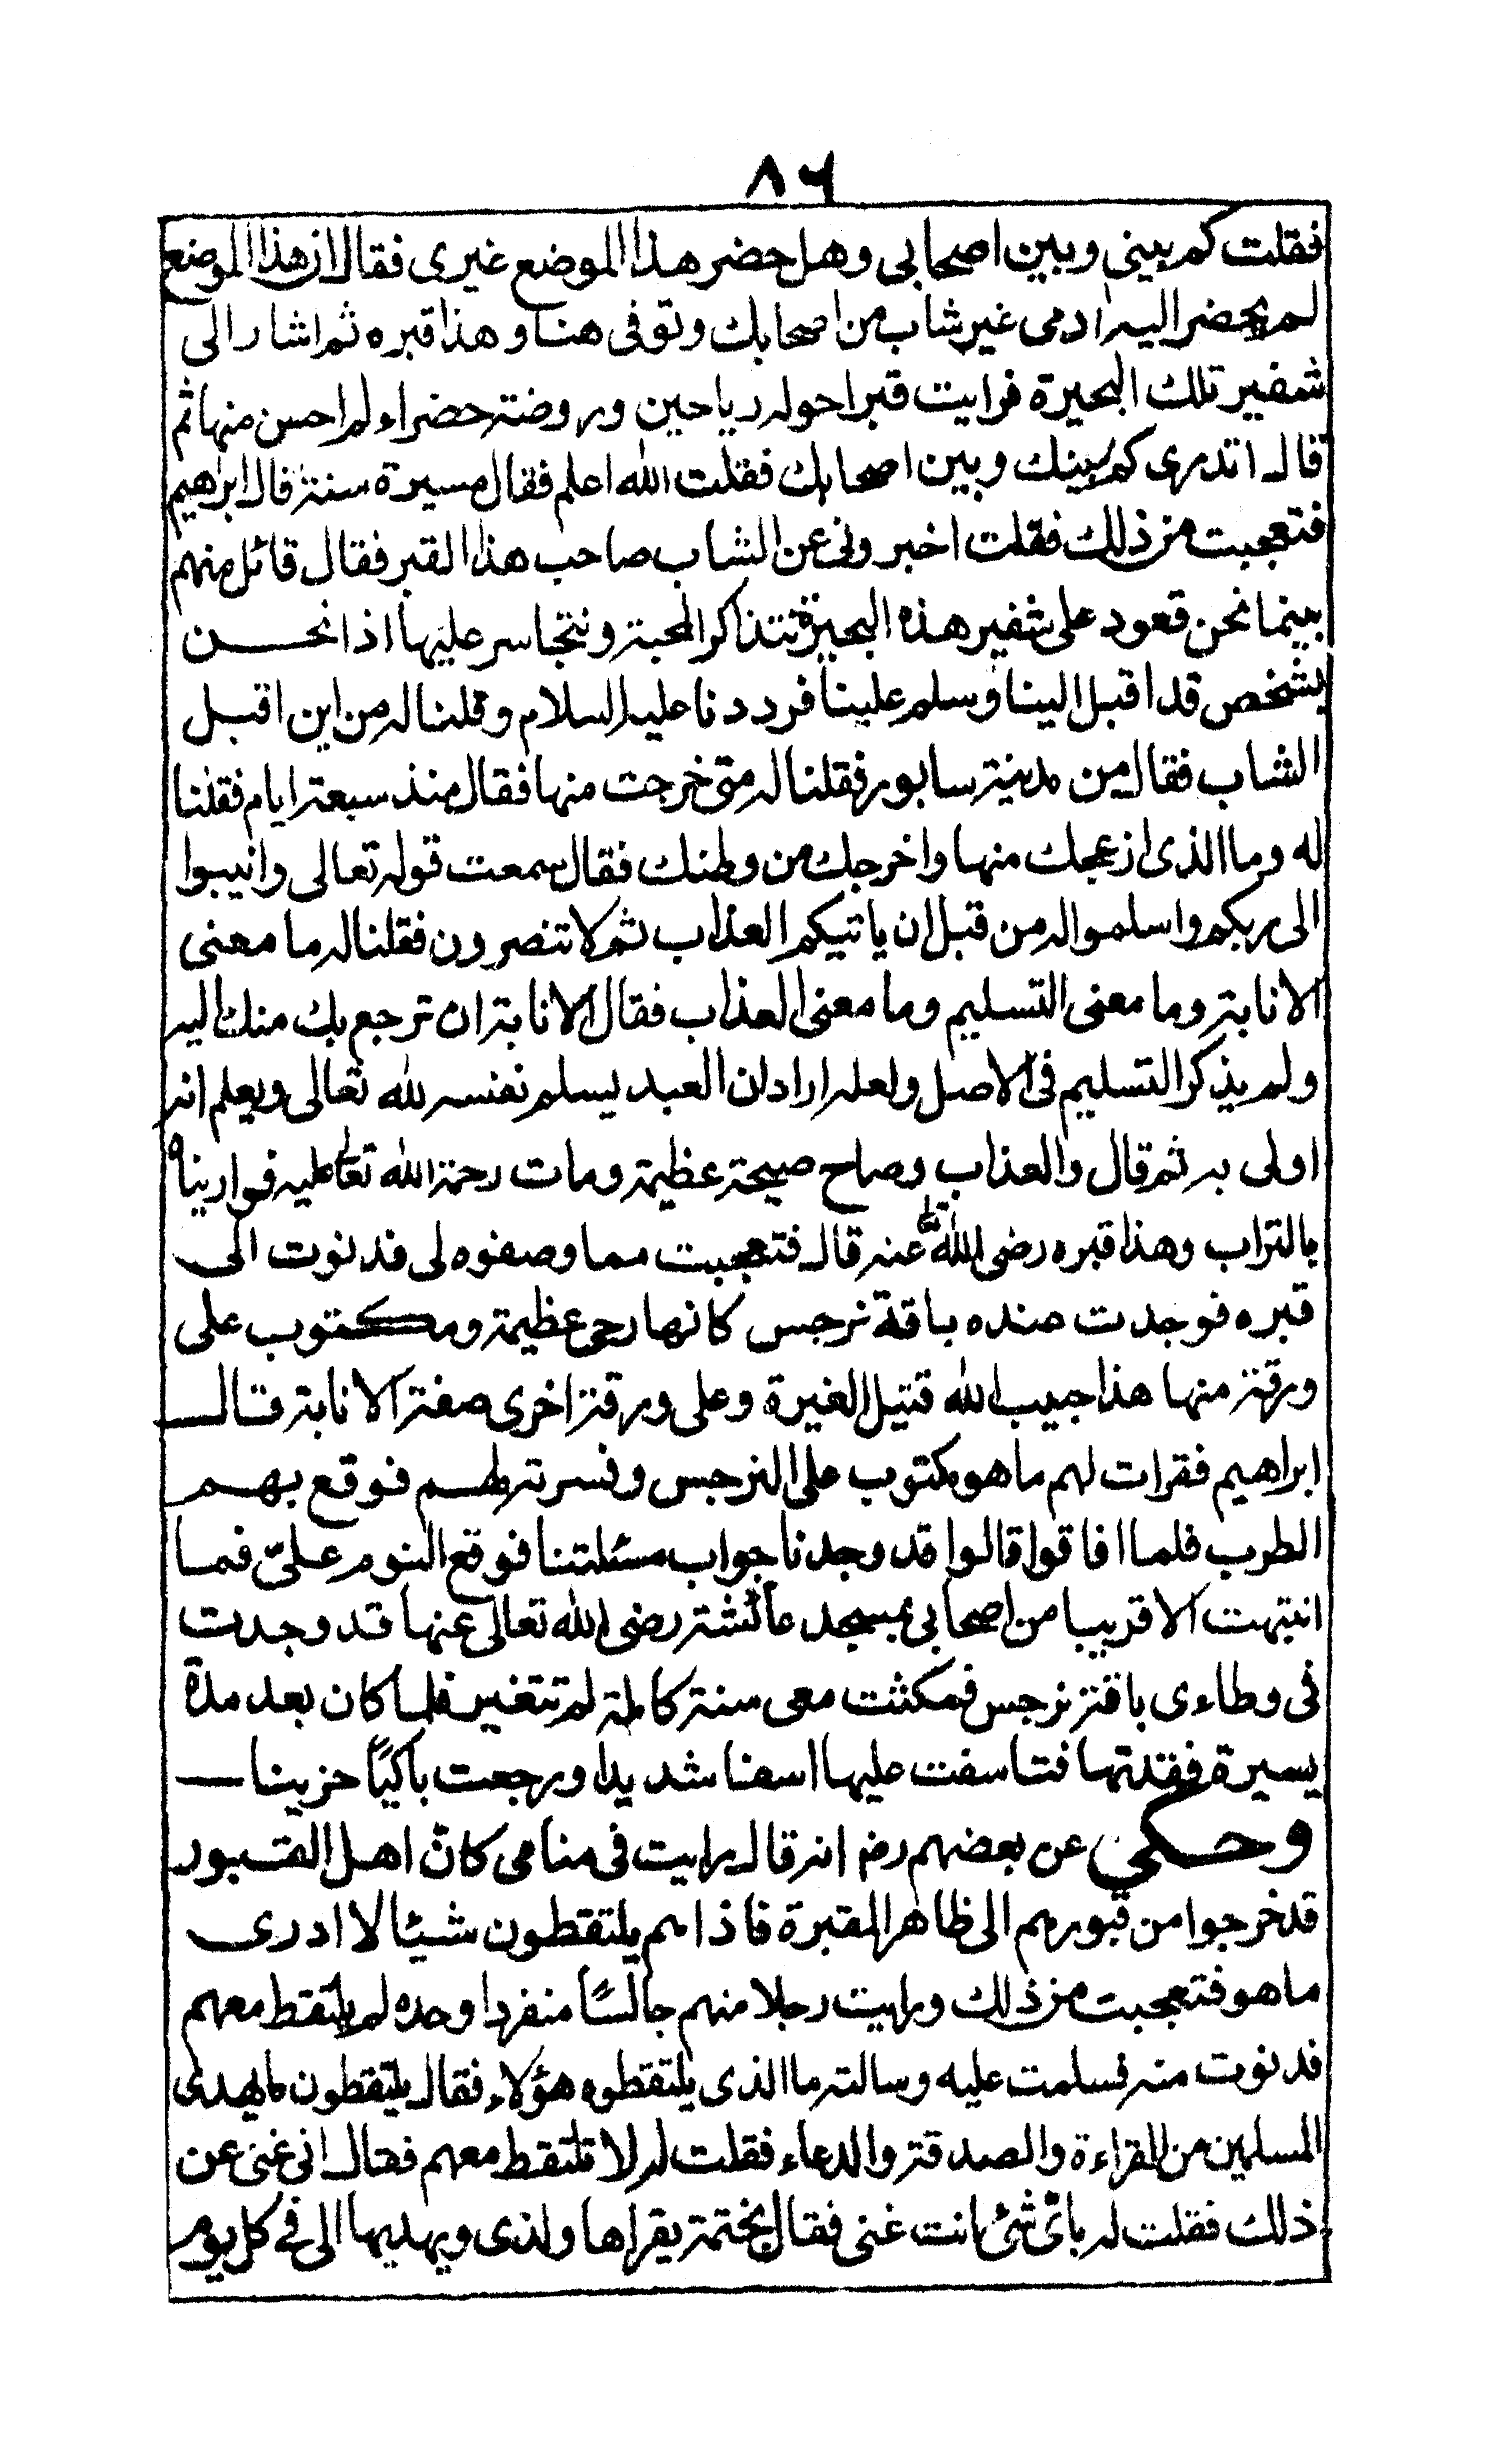 ٨٦
فقلت كم بيني وبين اصحابي وهل حضر هذا الموضع غيري فقال ان هذا الموضع
لم يحضر اليه ادمى غير شاب من اصحابك وتوفى هنا وهذا قبره ثم اشار الى
شفير تلك البحيرة فرايت قبرا حوله رياحين وروضة خضراء لم احسن منها ثم
قال اتدرى كم بينك وبين اصحابك فقلت الله اعلم فقال مسيرة سنة قال ابراهيم
فتعجبت من ذلك فقلت اخبرونى عن الشاب صاحب هذا القبر فقال قائل منهم
بينما نحن قعود على شفير هذه البحيرة نتذاكر المحبة ونتجاسر عليها اذا نحن
بشخص قد اقبل الينا وسلم علينا فرددنا عليه السلام وقلنا له من اين اقبل
الشاب فقال من مدينة سابور فقلنا له متى خرجت منها فقال منذ سبعة ايام فقلنا
له وما الذى ازعجك منها واخرجك من وطنك فقال سمعت قوله تعالى وانيبوا
الى ربكم واسلموا له من قبل ان ياتيكم العذاب ثم لا تنصرون فقلنا له ما معنى
الانابة وما معنى التسليم وما معنى العذاب فقال الانابة ان ترجع بك منك اليه
ولم يذكر التسليم فى الاصل ولعله اراد ان العبد يسلم نفسه لله تعالى ويعلم انه
اولى به ثم قال والعذاب وصاح صيحة عظيمة ومات رحمة الله تعالى عليه فواريناه
بالتراب وهذا قبره رضى الله تعالى عنه قال فتعجبت مما وصفوه لى فدنوت الى
قبره فوجدت عنده باقة نرجس كانها رحى عظيمة ومكتوب على
ورقة منها هذا حبيب الله قتيل الغيرة وعلى ورقة اخرى صفة الانابة قال
ابراهيم فقرات لهم ما هو مكتوب على النرجس وفسرته لهم فوقع بهم
الطرب فلما افاقوا قالوا قد وجدنا جواب مسئلتنا فوقع النوم علىّ فما
انتبهت الا قريبا من اصحابى بمسجد عائشة رضى الله تعالى عنها قد وجدت
فى وطاءى باقة نرجس فمكثت معى سنة كاملة لم تتغير فلما كان بعد مدة
يسيرة فقدتها فتاسفت عليها اسفا شديدا ورجعت باكيًا حزينا
وحكي عن بعضهم رض انه قال رايت فى منامى كانّ اهل القبور
قد خرجوا من قبورهم الى ظاهر المقبرة فاذا هم يلتقطون شيئا لا ادرى
ما هو فتعجبت من ذلك ورايت رجلا منهم جالسًا منفردا وحده لم يلتقط معهم
فدنوت منه فسلمت عليه وسالته ما الذى يلتقطوه هؤلاء فقال يلتقطون ما يهدى
المسلمين من القراءة والصدقة والدعاء فقلت له لا تلتقط معهم فقال انى غنى عن
ذلك فقلت له باىّ شئ انت غنى فقال بختمة يقراها ولدى ويهديها الى فى كل يوم